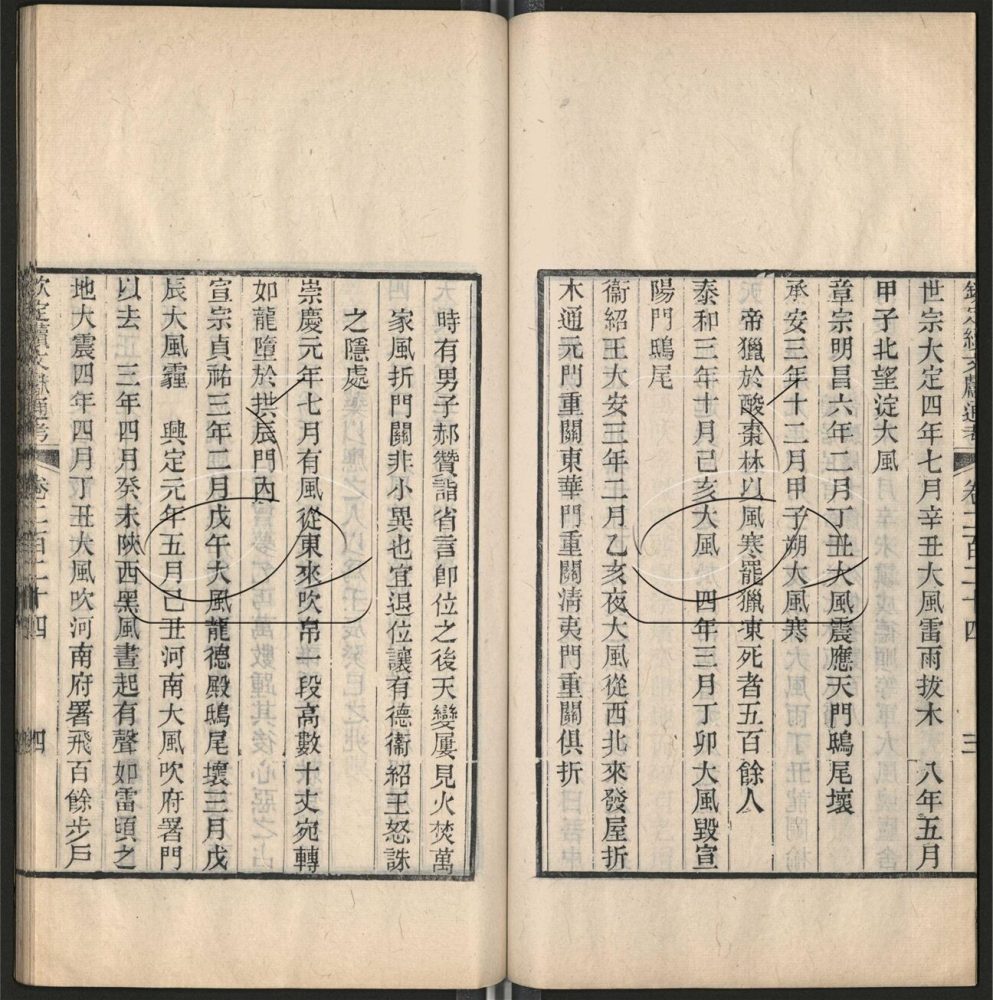 欽定續文獻通考 卷二百二十四 三
世宗大定四年七月辛丑大風雷雨拔木 八年五月
甲子北望淀大風
章宗明昌六年二月丁丑大風震應天門鴟尾壞
承安三年十二月甲子朔大風寒
帝獵於酸棗林以風寒罷獵凍死者五百餘人
泰和三年十月己亥大風 四年三月丁卯大風毀宣
陽門鴟尾
衞紹王大安三年二月乙亥夜大風從西北來發屋折
木通元門重關東華門重關清夷門重關俱折
時有男子郝贊詣省言卽位之後天變屢見火焚萬
家風折門關非小異也宜退位讓有德衞紹王怒誅
之隱處
崇慶元年七月有風從東來吹帛一段高數十丈宛轉
如龍墮於拱辰門內
宣宗貞祐三年二月戊午大風龍德殿鴟尾壞三月戊
辰大風霾 興定元年五月己丑河南大風吹府署門
以去 三年四月癸未陝西黑風晝起有聲如雷頃之
地大震四年四月丁丑大風吹河南府署飛百餘步戶
欽定續文獻通考 卷二百二十四 四